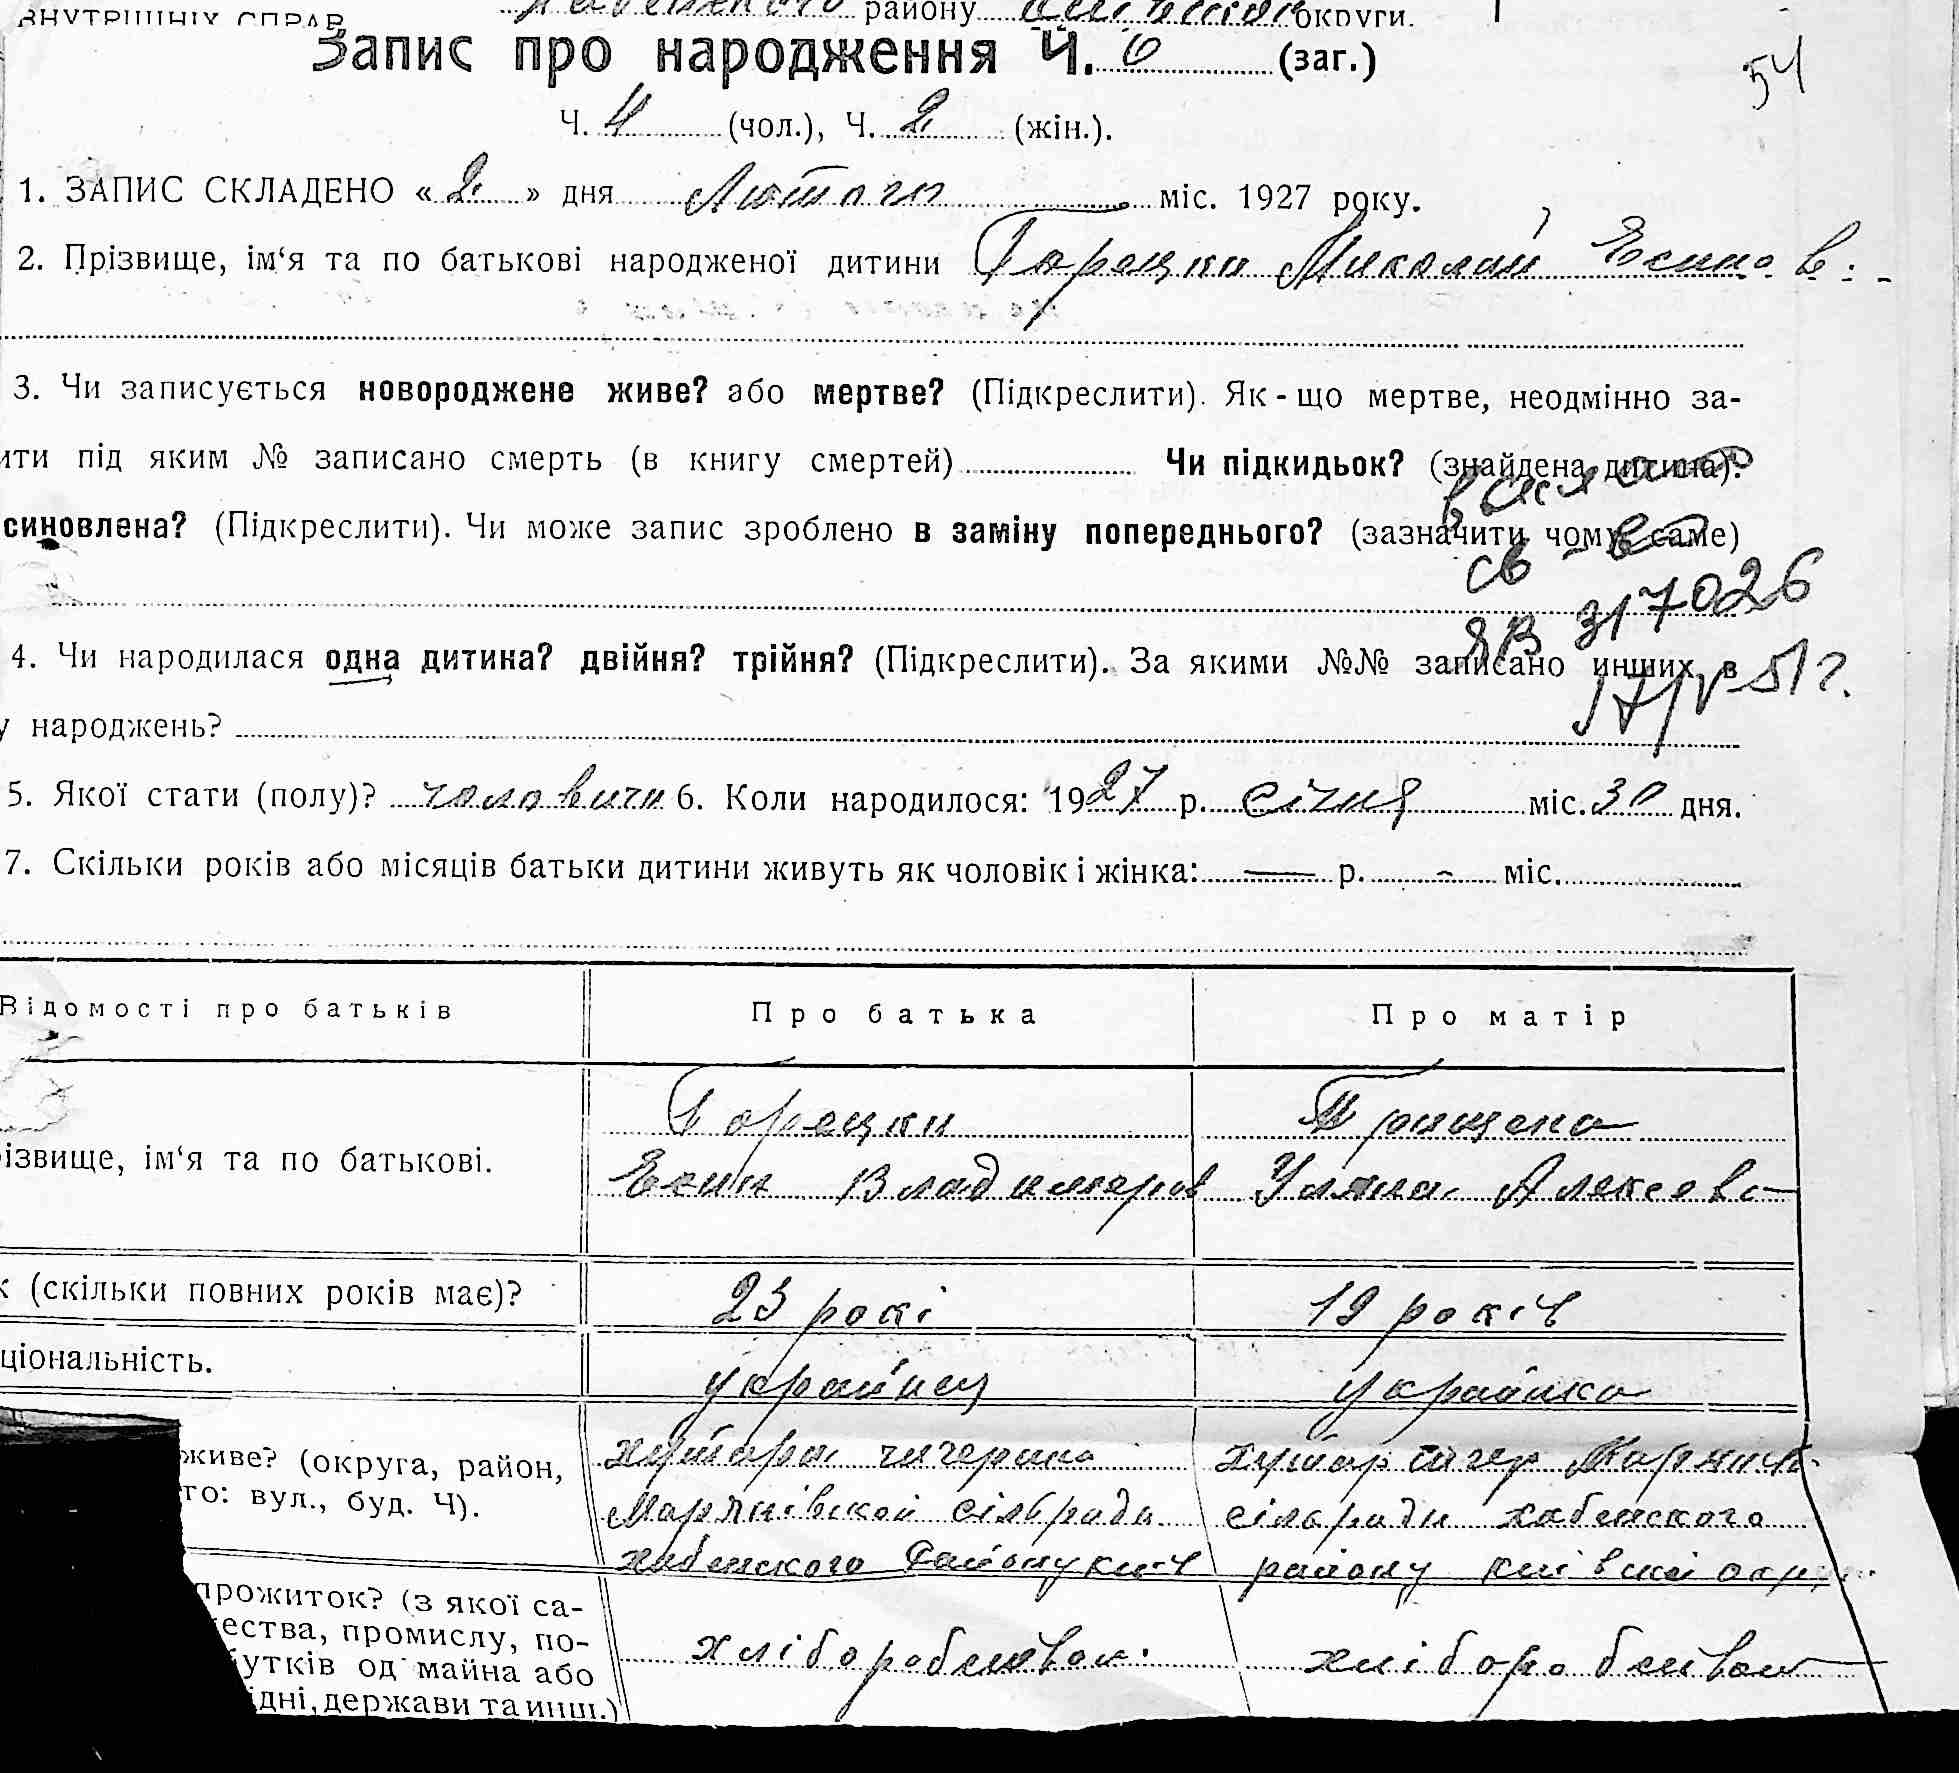 ВНУТРІШНІХ СПРАВ району округи.
Запис про народження Ч. 6 (заг.)
54
Ч. 4 (чол.), Ч. 2 (жін.).
1. ЗАПИС СКЛАДЕНО « 2 » дня Лютого міс. 1927 року.
2. Прізвище, ім‘я та по батькові народженої дитини Горецки Миколай Есипов.
3. Чи записується новороджене живе? або мертве? (Підкреслити). Як-що мертве, неодмінно за-
ити під яким № записано смерть (в книгу смертей) Чи підкидьок? (знайдена дитина).
синовлена? (Підкреслити). Чи може запис зроблено в заміну попереднього? (зазначити чому саме)
св-во
ЯВ 317026
17/V-51г.
4. Чи народилася одна дитина? двійня? трійня? (Підкреслити). За якими №№ записано инших в
у народжень?
5. Якої стати (полу)? чоловичи 6. Коли народилося: 1927 р. січня міс. 30 дня.
7. Скільки років або місяців батьки дитини живуть як чоловік і жінка: — р. - міс.
Відомості про батьків Про батька Про матір
Горецки
ізвище, ім‘я та по батькові.
Есип Владимеров Уляна Алексеевн
к (скільки повних років має)? 23 рокі 19 років
ціональність. украйнец украінка
живе? (округа, район, хутора чичерина хутор чичер
то: вул., буд. Ч). Марянівской сільради сільради хабенского
хабенского Району киів району киівскій округ
прожиток? (з якої са-
ества, промислу, по- хліборобством хліборобством
утків од майна або
ідні, держави та инш.)